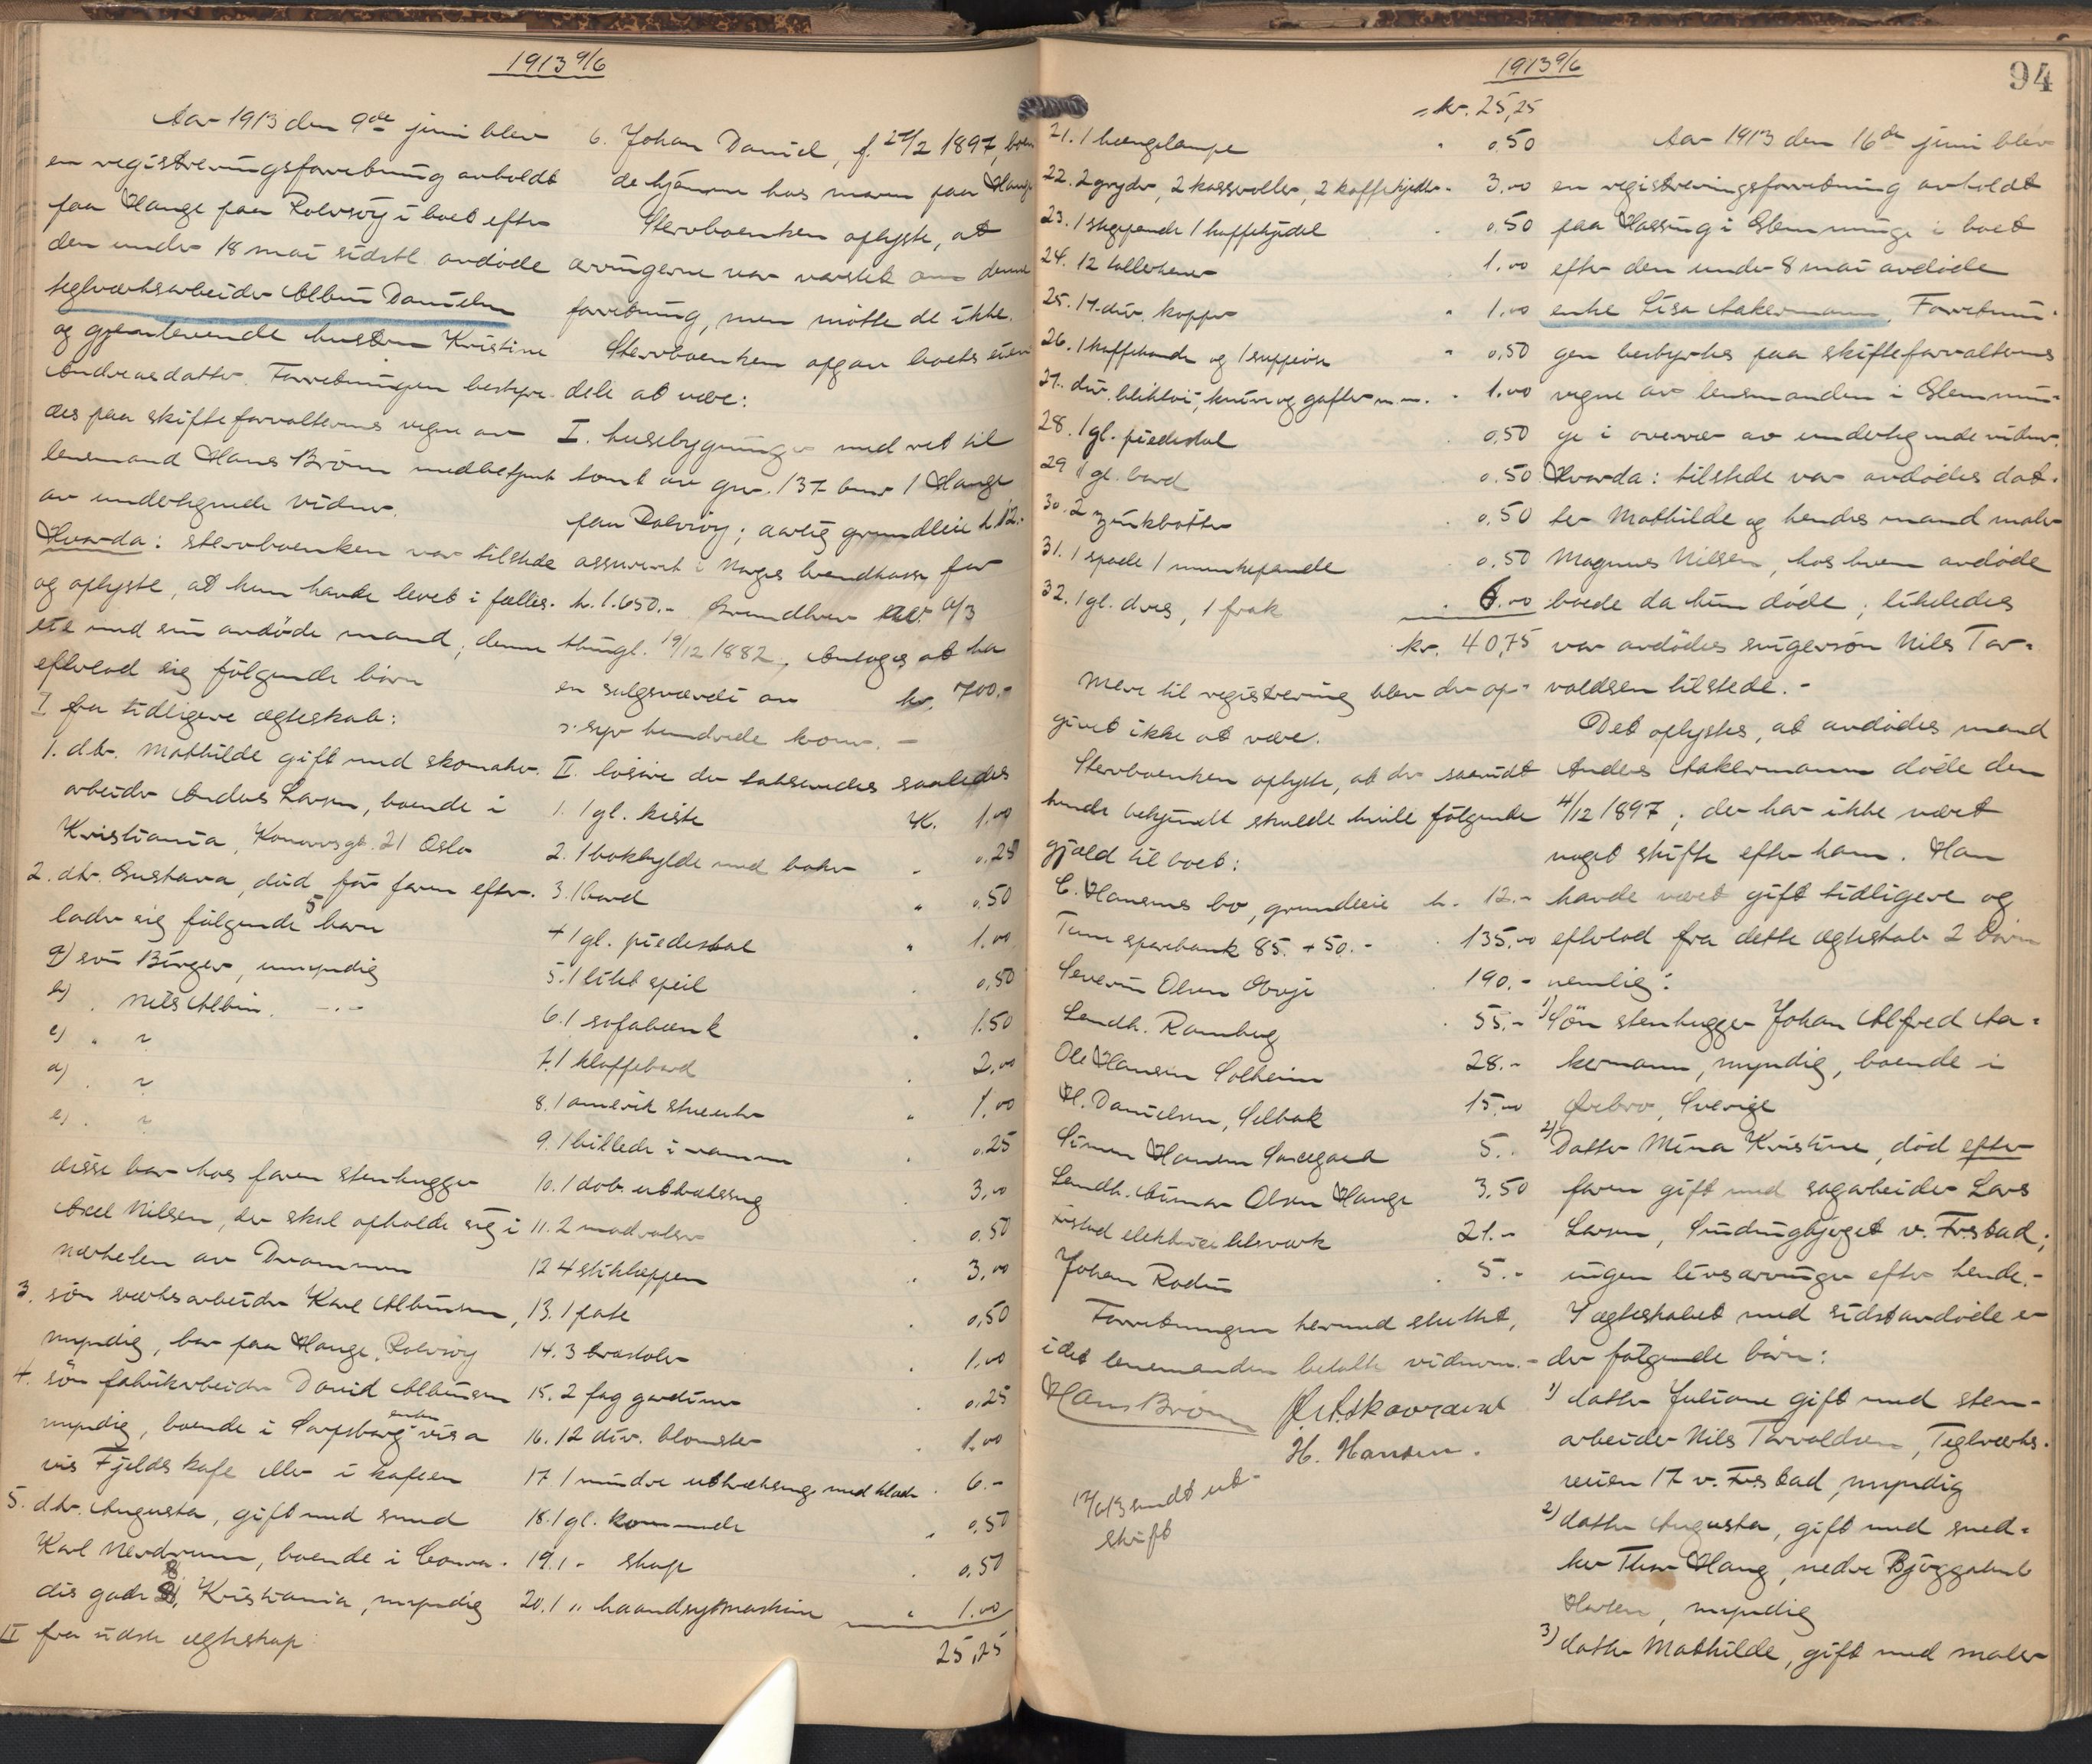 1913 9/6
Aar 1913 den 9de juni blev
en registreringsforretning avholdt
paa Hauge paa Rolvsøy i boet efter
den under 18 mai sidstl. avdøde
teglverksarbeider Albin Danielsen
og gjenlevende hustru Kristine
Andreasdatter. Forretningen bestyre-
des paa skifteforvalterens vegne av
lensmand Hans Brønn medbetjent
av undertegnede vidner.
Hvorda: stervboenken var tilstede
og oplyste, at hun havde levet i fælles-
eie med sin avdøde mand, denne
efterlod sig følgende børn
I fra tidligere ægteskab:
1. dtr. Mathilde gift med skomaker-
arbeider Anders Larsen, boende i
Kristiania, Konowsgt. 21 Oslo
2. dtr. Gustava, død før faren efter-
lader sig følgende 5 barn
a) søn Birger, umyndig
b) " Nils Albin -"-
c) " ?
d) " ?
e) " ?
disse bor hos faren stenhugger
Axel Nilsen, der skal opholde sig i
nærheten av Drammen
3. søn verksarbeider Karl Albinsen,
myndig, bor paa Hauge, Rolvsøy
4. søn fabrikarbeider David Albinsen
myndig, boende i Sarpsborg enten vis a
vis Fjelds kafe eller i kafeen
5. dtr. Augusta, gift med smed
Karl Nerdrum, boende i
dis gade 8, Kristiania, myndig
II fra sidste ægteskap
6. Johan Daniel, f. 27/2 1897, boen-
de hjemme hos moren paa Hauge
Stervboenken oplyste, at
arvingerne var varslet om denne
forretning, men møtte de ikke.
Stervboenken opgav boets eien-
dele at være:
I. husebygninger med ret til
tomt av gnr. 137 bnr 1 Hauge
paa Rolvsøy; aarlig grundleie kr. 12.-
assurert i Norges brandkasse for
kr. 1.650.- Grundbrev
thingl. 19/12 1882. Antages at ha
en salgsværdi av kr. 700.-
syv hundrede kroner. -
II. løsøre der taksertes saaledes
1. 1 gl. kiste K. 1.00
2. 1 bokhylde med bøker " 0.25
3. 1 bord " 0.50
4 1 gl. piedestal " 1.00
5. 1 litet speil " 0,50
6. 1 sofabænk " 1.50
7. 1 klaffebord " 2,00
8. 1 amerik stueuhr " 1,00
9. 1 billede i ramme " 0.25
10. 1 dob. uttræksseng " 3,00
11. 2 madrasser " 0.50
12 4 stiktepper " 3,00
13. 1 " 0,50
14. 3 træstoler " 1.00
15. 2 fag gardiner " 0.25
16. 12 div. blomster " 1.00
17 1 mindre uttræksseng med klæder " 6.-
18. 1 gl. kommode " 0,50
19. 1 " skap " 0.50
20. 1 " haandsymaskine " 1.00
25,25
1913 9/6
94
= kr. 25,25
21. 1 hængelampe " 0.50
22. 2 gryder, 2 kasseroller, 2 kaffekjedler " 3.00
23. 1 stegepande 1 kaffekjedel " 0.50
24. 12 tallerkener 1.00
25. 17 div. kopper " 1.00
26. 1 kaffekande og 1 suppeøse " 0,50
27. div. bliktøi, kniver og gafler m.m. " 1.00
28. 1 gl. piedestal " 0,50
29 1 gl. bord 0.50
30. 2 zinkbøtter " 0.50
31. 1 spade 1 munkepande " 0.50
32. 1 gl. dres, 1 frak " 6.00
kr. 40,75
Mere til registrering blev der op-
givet ikke at være.
Stervboenken oplyste, at der saavidt
hende bekjendt skulde hvile følgende
gjæld til boet:
C. Hansens bo, grundleie kr. 12.-
Tune sparebank 85.+50.- " 135.00
Severin Olsen " 190.-
Landh. Ramberg " 55.-
Ole Hansen Solheim 28.-
H. Danielsen, Selbak 15.00
Simen Hansen 5.-
Landh. Olsen Hauge 3,50
F.stad elektricitetsverk 21.-
Johan Rodin " 5.-
Forretningen hermed sluttet,
idet lensmanden betalte vidnerne.-
Hans Brønn
H. Hansen.
12/6 13 sendt ut-
skrift
Aar 1913 den 16de juni blev
en registreringsforretning avholdt
paa Hassing i Glemminge i boet
efter den under 8 mai avdøde
enke Lisa Aakermann. Forretnin-
gen bestyrtes paa skifteforvalterens
vegne av lensmanden i Glemmin-
ge i overvær av undertegnede vidner.
Hvorda: tilstede var avdødes dat-
ter Mathilde og hendes mand maler
Magnus Nilsen, hos hvem avdøde
boede da hun døde; likeledes
var avdødes svigersøn Nils Tor-
valdsen tilstede.-
Det oplystes, at avdødes mand
Anders Aakermann døde den
4/12 1897; der har ikke været
noget skifte efter ham. Han
havde været gift tidligere og
efterlod fra dette ægteskab 2 børn
nemlig:
1) Søn stenhugger Johan Alfred Aa-
kermann, myndig, boende i
Ørebro, Sverige
2) Datter Mina Kristine, død efter
faren gift med sagarbeider Lars
Larsen, v. Fr.stad;
ingen livsarvinger efter hende.-
I ægteskabet med sidstavdøde er
der følgende børn:
1) datter Juliane gift med sten-
arbeider Nils Torvaldsen, Teglverks-
veien 17 v. Fr.stad myndig
2) datter Augusta, gift med sned-
ker Thor Haug, nedre
Horten, myndig
3) datter Mathilde, gift med maler